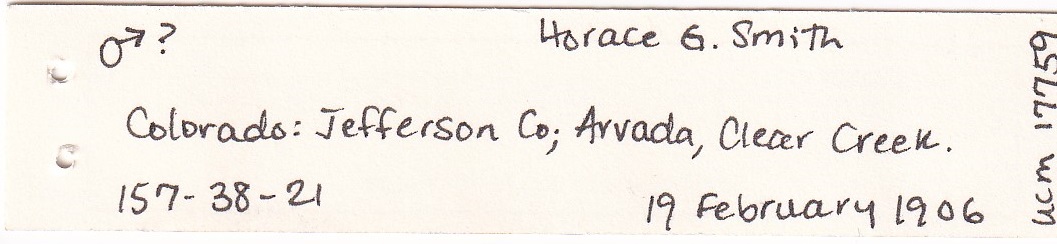 ♂? Horace G. Smith
Colorado: Jefferson Co; Arvada, Clear Creek.
157-38-21 19 February 1906
UCM 17759